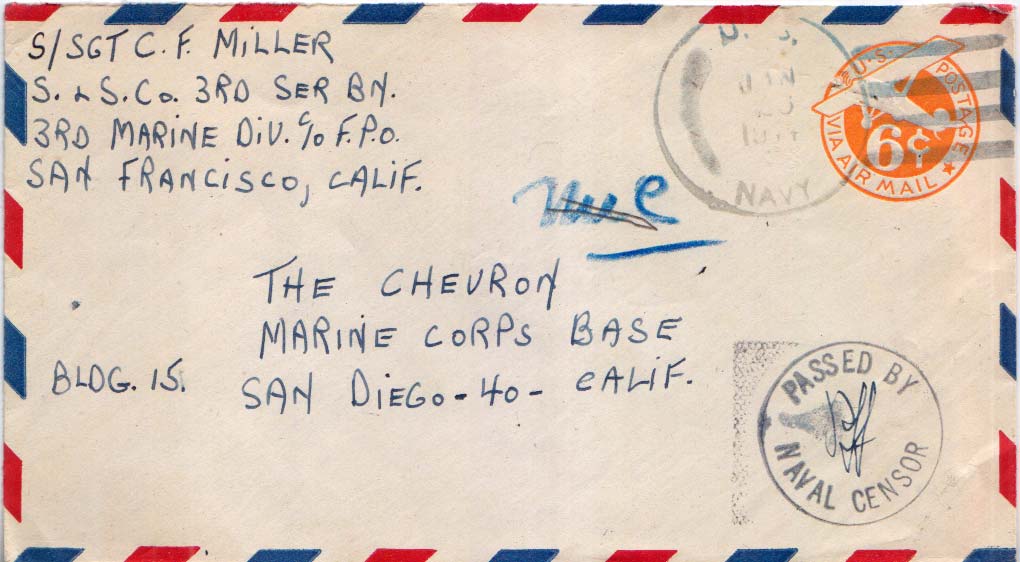 S/SGT C. F. MILLER
S. & S. Co. 3RD SER BN.
3RD MARINE DIV. C/O F.P.O.
SAN FRANCISCO, CALIF.
NAVY
U.S. POSTAGE
6¢
VIA AIR MAIL
THE CHEVRON
MARINE CORPS BASE
BLDG. 15. SAN DIEGO - 40 - CALIF.
PASSED BY
NAVAL CENSOR